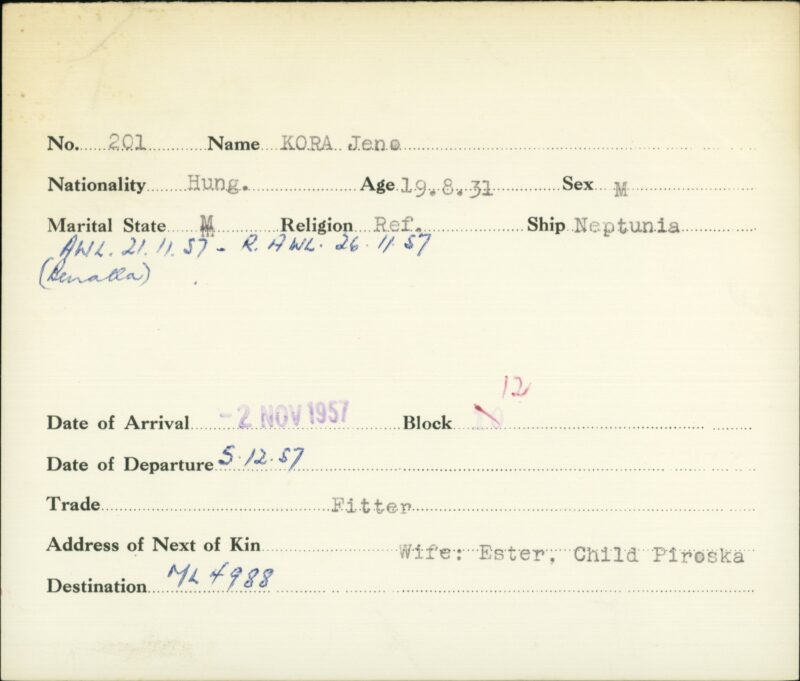 No. 201 Name KORA Jeno
Nationality Hung. Age 19.8.31 Sex M
Marital State M Religion Ref. Ship Neptunia
AWL. 21.11.57 - R. AWL. 26.11.57
(Benalla)
12
Date of Arrival -2 NOV 1957 Block 10
Date of Departure 5.12.57
Trade Fitter
Address of Next of Kin Wife: Ester, Child Piroska
Destination ML 4988